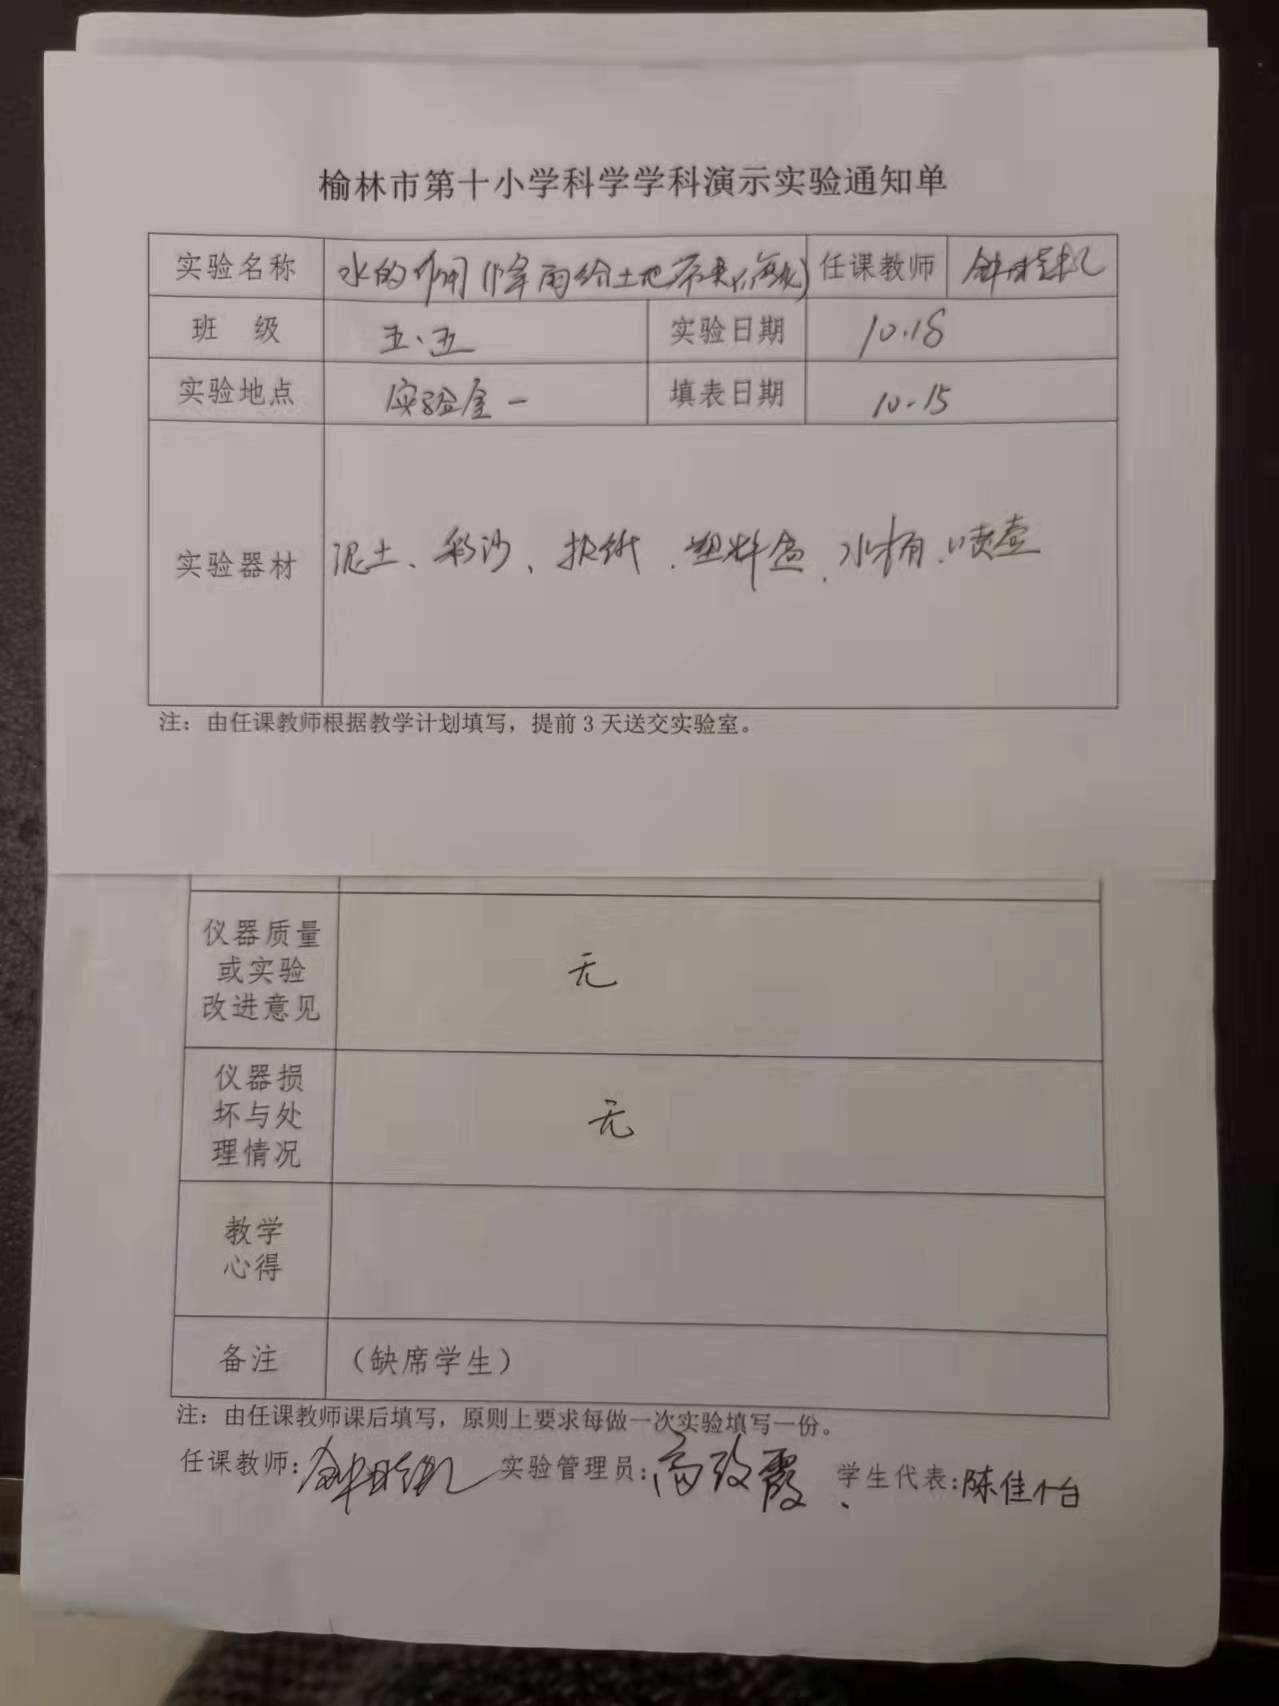 榆林市第十小学科学学科演示实验通知单
实验名称 水的作用(降雨给土地带来的 任课教师
班 级 五.五 实验日期 10.18
实验地点 实验室一 填表日期 10.15
实验器材 泥土、彩沙、报纸、塑料盒、水桶、喷壶
注：由任课教师根据教学计划填写，提前3天送交实验室。
仪器质量
或实验
改进意见
无
仪器损
坏与处
理情况
无
教学
心得
备注 （缺席学生）
注：由任课教师课后填写，原则上要求每做一次实验填写一份。
任课教师: 实验管理员:高改霞、学生代表:陈佳怡